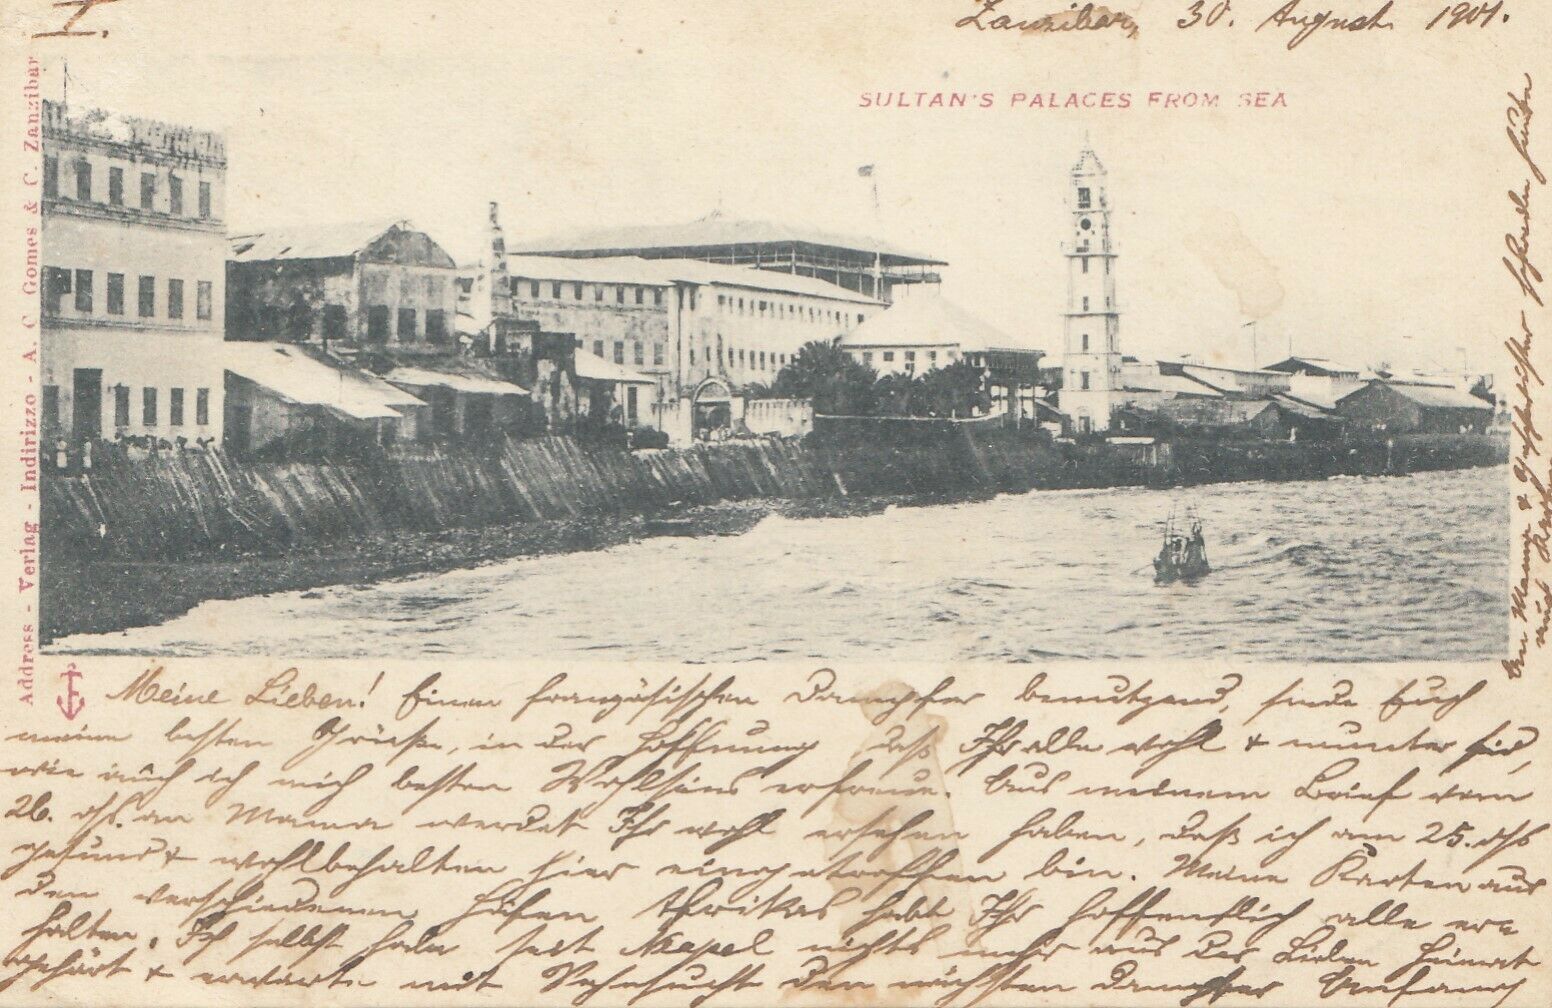 I.
Zanzibar, 30. August 1901.
SULTAN'S PALACES FROM SEA
Address - Verlag - Indirizzo - A. C. Gomes & C. Zanzibar
Meine Lieben! Einen französischen Dampfer benutzend, sende Euch
meine besten Grüße, in der Hoffnung daß Ihr alle wohl & munter seid,
wie auch ich mich besten Wohlseins erfreue. Aus meinem Brief vom
26. ds. an Mama werdet Ihr wohl ersehen haben, daß ich am 25. ds
gesund & wohlbehalten hier eingetroffen bin. Meine Karten aus
den verschiedenen Häfen Afrikas habt Ihr hoffentlich alle er=
halten. Ich selbst habe seit Neapel nichts mehr aus der Lieben Heimat
gehört & erwarte mit Sehnsucht den nächsten Dampfer Anfang
An Mama & Geschwister sende
auch Karten